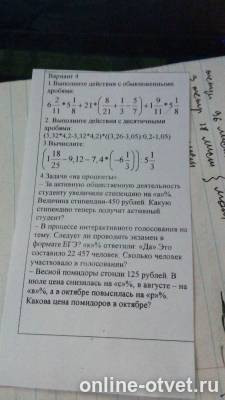 Вариант 4
1.Выполните действия с обыкновенными
дробями:
6 2/11 * 5 1/8 + 21 * (8/21 + 1/3 - 5/7) + 1 9/11 * 5 1/8
2. Выполните действия с десятичными
дробями:
(3,32*4,2-3,32*4,2)*((3,26-3,05):0,2-1,05)
3.Вычислите:
(1 18/25 - 9,12 - 7,4 * (-6 1/3)) : 5 1/3
4.Задачи «на проценты»
– За активную общественную деятельность
студенту увеличили стипендию на «а»%.
Величина стипендии-450 рублей. Какую
стипендию теперь получит активный
студент?
– В процессе интерактивного голосования на
тему: Следует ли проводить экзамен в
формате ЕГЭ? «к»% ответили: «Да» Это
составило 22 457 человек. Сколько человек
участвовало в голосовании?
– Весной помидоры стоили 125 рублей. В
июле цена снизилась на «с»%, в августе – на
«в»%, а в октябре повысилась на «р»%.
Какова цена помидоров в октябре?
online-otvet.ru